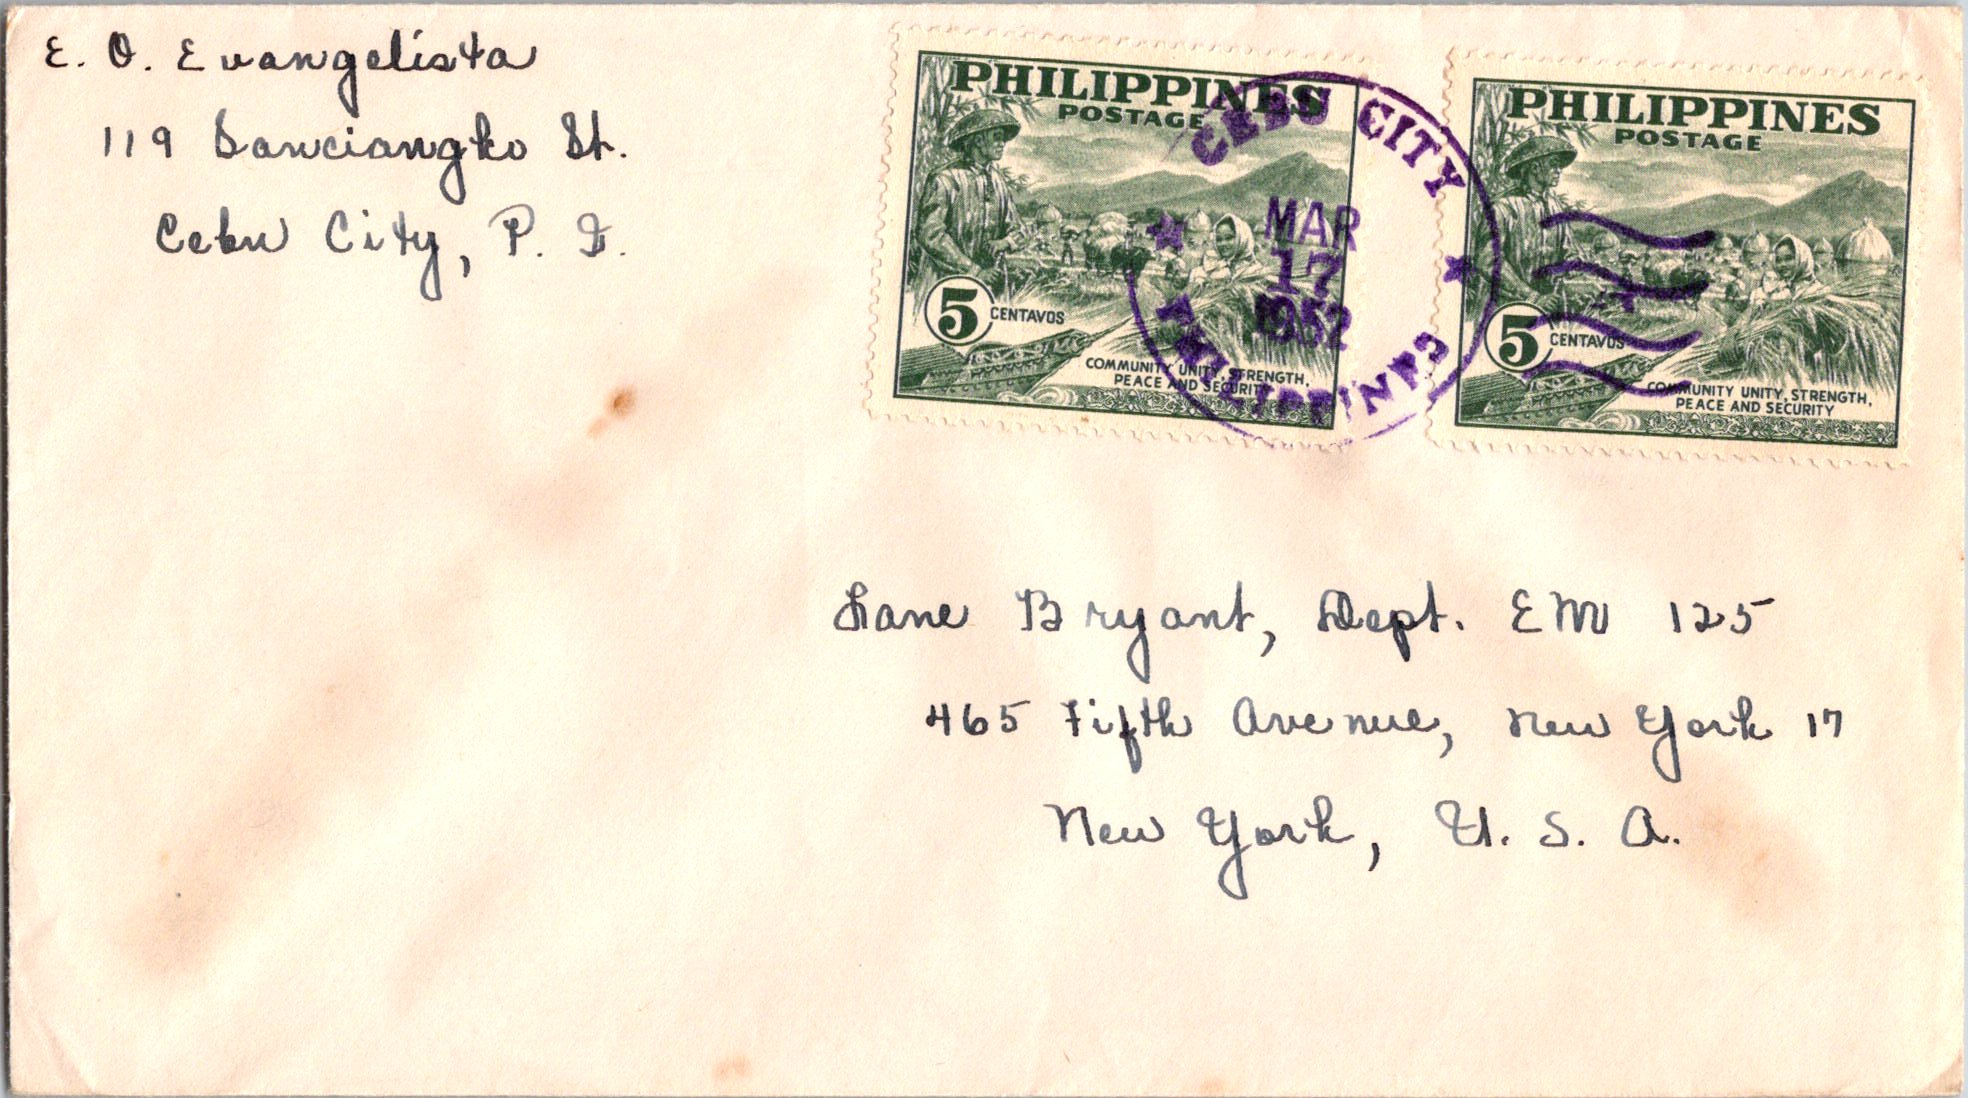 E. O. Evangelista
119 Sanciangko St.
Cebu City, P. I.
PHILIPPINES
POSTAGE
5 CENTAVOS
COMMUNITY UNITY, STRENGTH,
PEACE AND SECURITY
CEBU CITY
MAR
17
1952
PHILIPPINES
PHILIPPINES
POSTAGE
5 CENTAVOS
COMMUNITY UNITY, STRENGTH,
PEACE AND SECURITY
Lane Bryant, Dept. EM 125
465 Fifth Avenue, New York 17
New York, U. S. A.